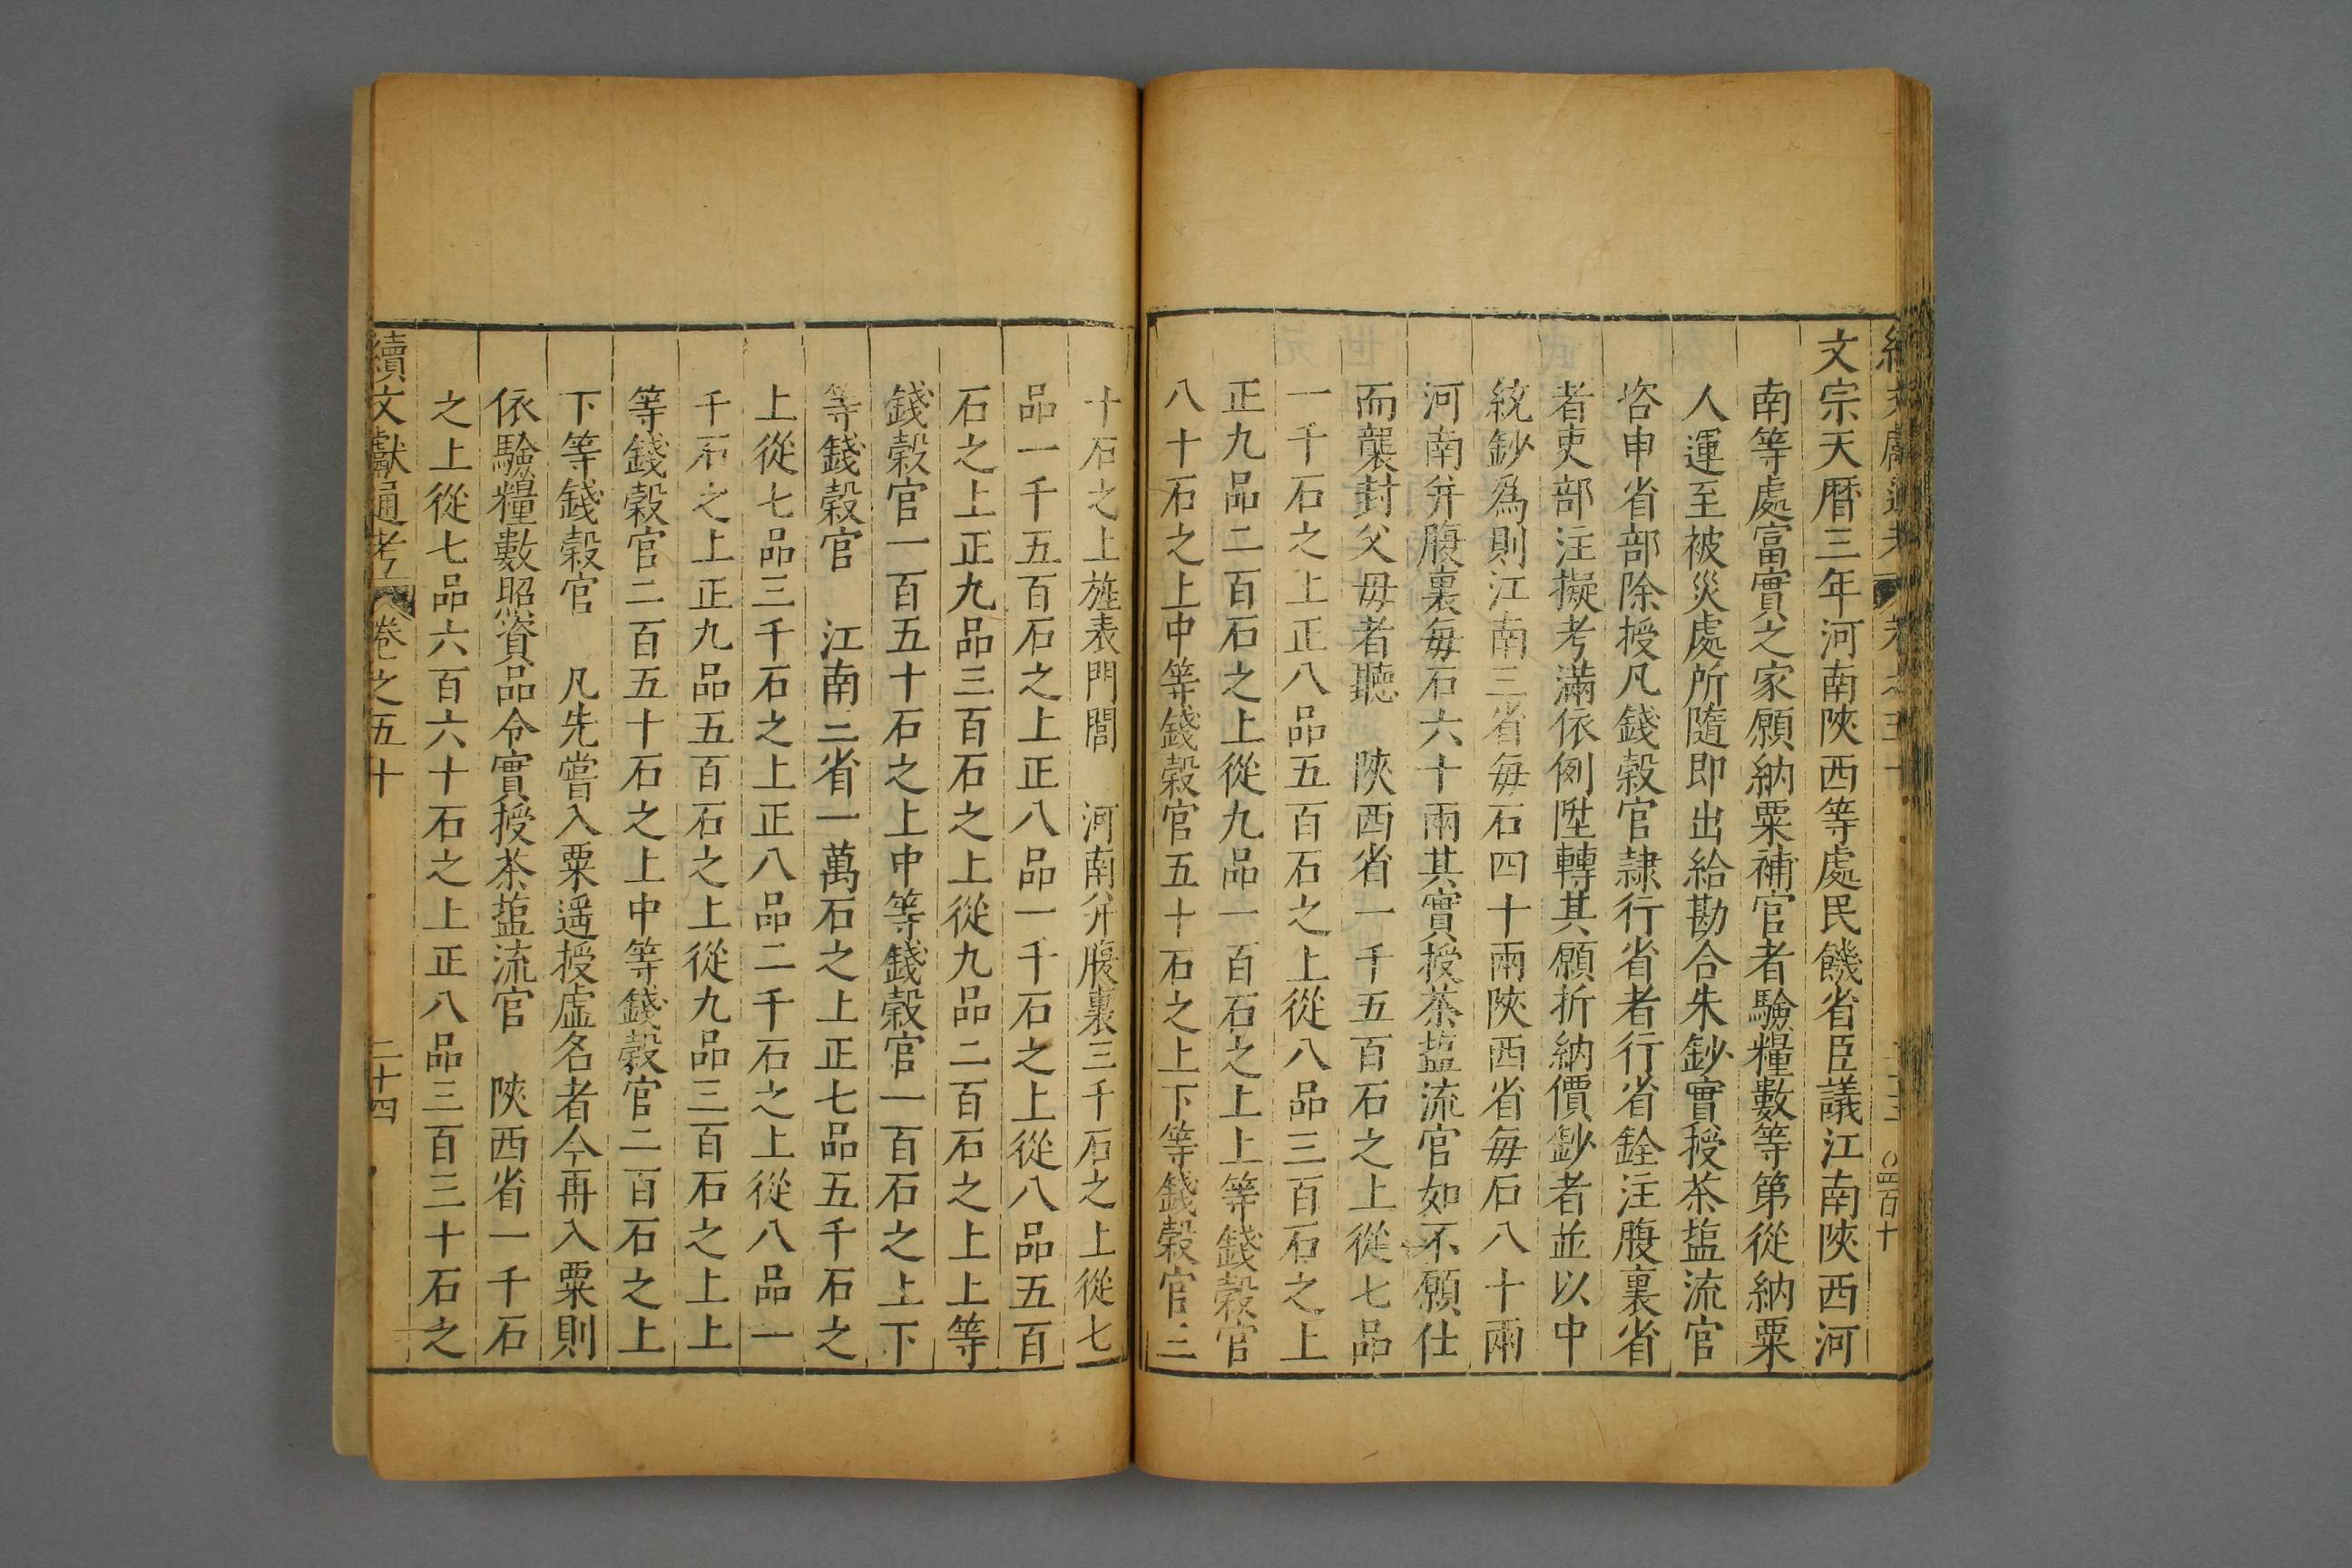 文宗天曆三年河南陝西等處民饑省臣議江南陝西河
南等處富實之家願納粟補官者驗糧數等第從納粟
人運至被災處所隨即出給勘合朱鈔實授茶塩流官
咨申省部除授凡錢穀官隷行省者行省銓注腹裏省
者吏部注擬考滿依例陞轉其願折納價鈔者並以中
統鈔爲則江南三省每石四十兩陝西省每石八十兩
河南并腹裏每石六十兩其實授茶塩流官如不願仕
而襲封父母者聽　陝西省一千五百石之上從七品
一千石之上正八品五百石之上從八品三百石之上
正九品二百石之上從九品一百石之上上等錢穀官
八十石之上中等錢穀官五十石之上下等錢穀官三
十石之上旌表門閭　河南并腹裏三千石之上從七
品一千五百石之上正八品一千石之上從八品五百
石之上正九品三百石之上從九品二百石之上上等
錢穀官一百五十石之上中等錢穀官一百石之上下
等錢穀官　江南三省一萬石之上正七品五千石之
上從七品三千石之上正八品二千石之上從八品一
千石之上正九品五百石之上從九品三百石之上上
等錢穀官二百五十石之上中等錢穀官二百石之上
下等錢穀官　凡先嘗入粟遥授虛名者今再入粟則
依驗糧數照資品令實授茶塩流官　陝西省一千石
之上從七品六百六十石之上正八品三百三十石之
續文獻通考　卷之五十　二十四